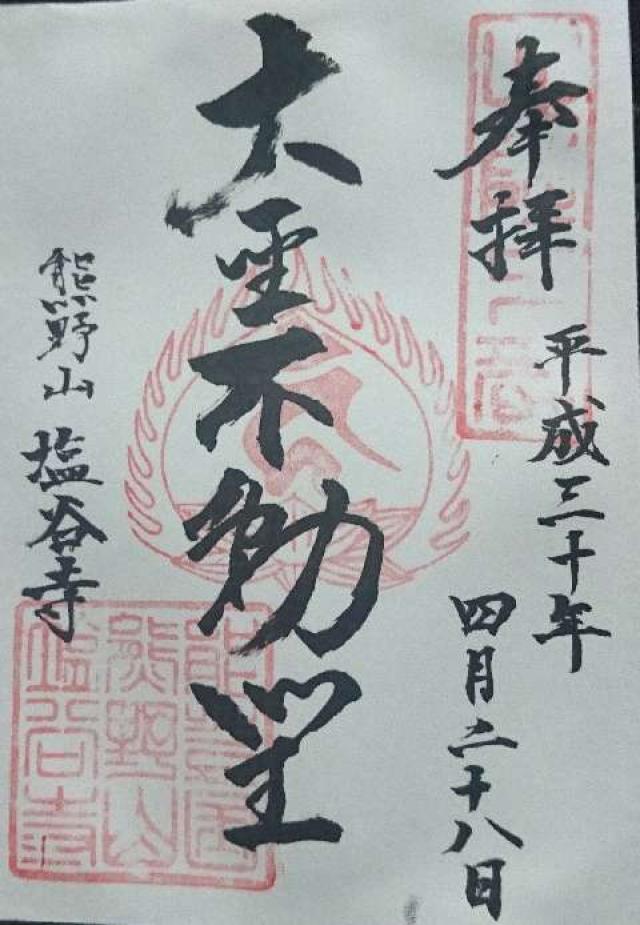 奉拝
平成三十年
四月二十八日
大聖不動堂
熊野山 塩谷寺
能登国
熊野山
塩谷寺